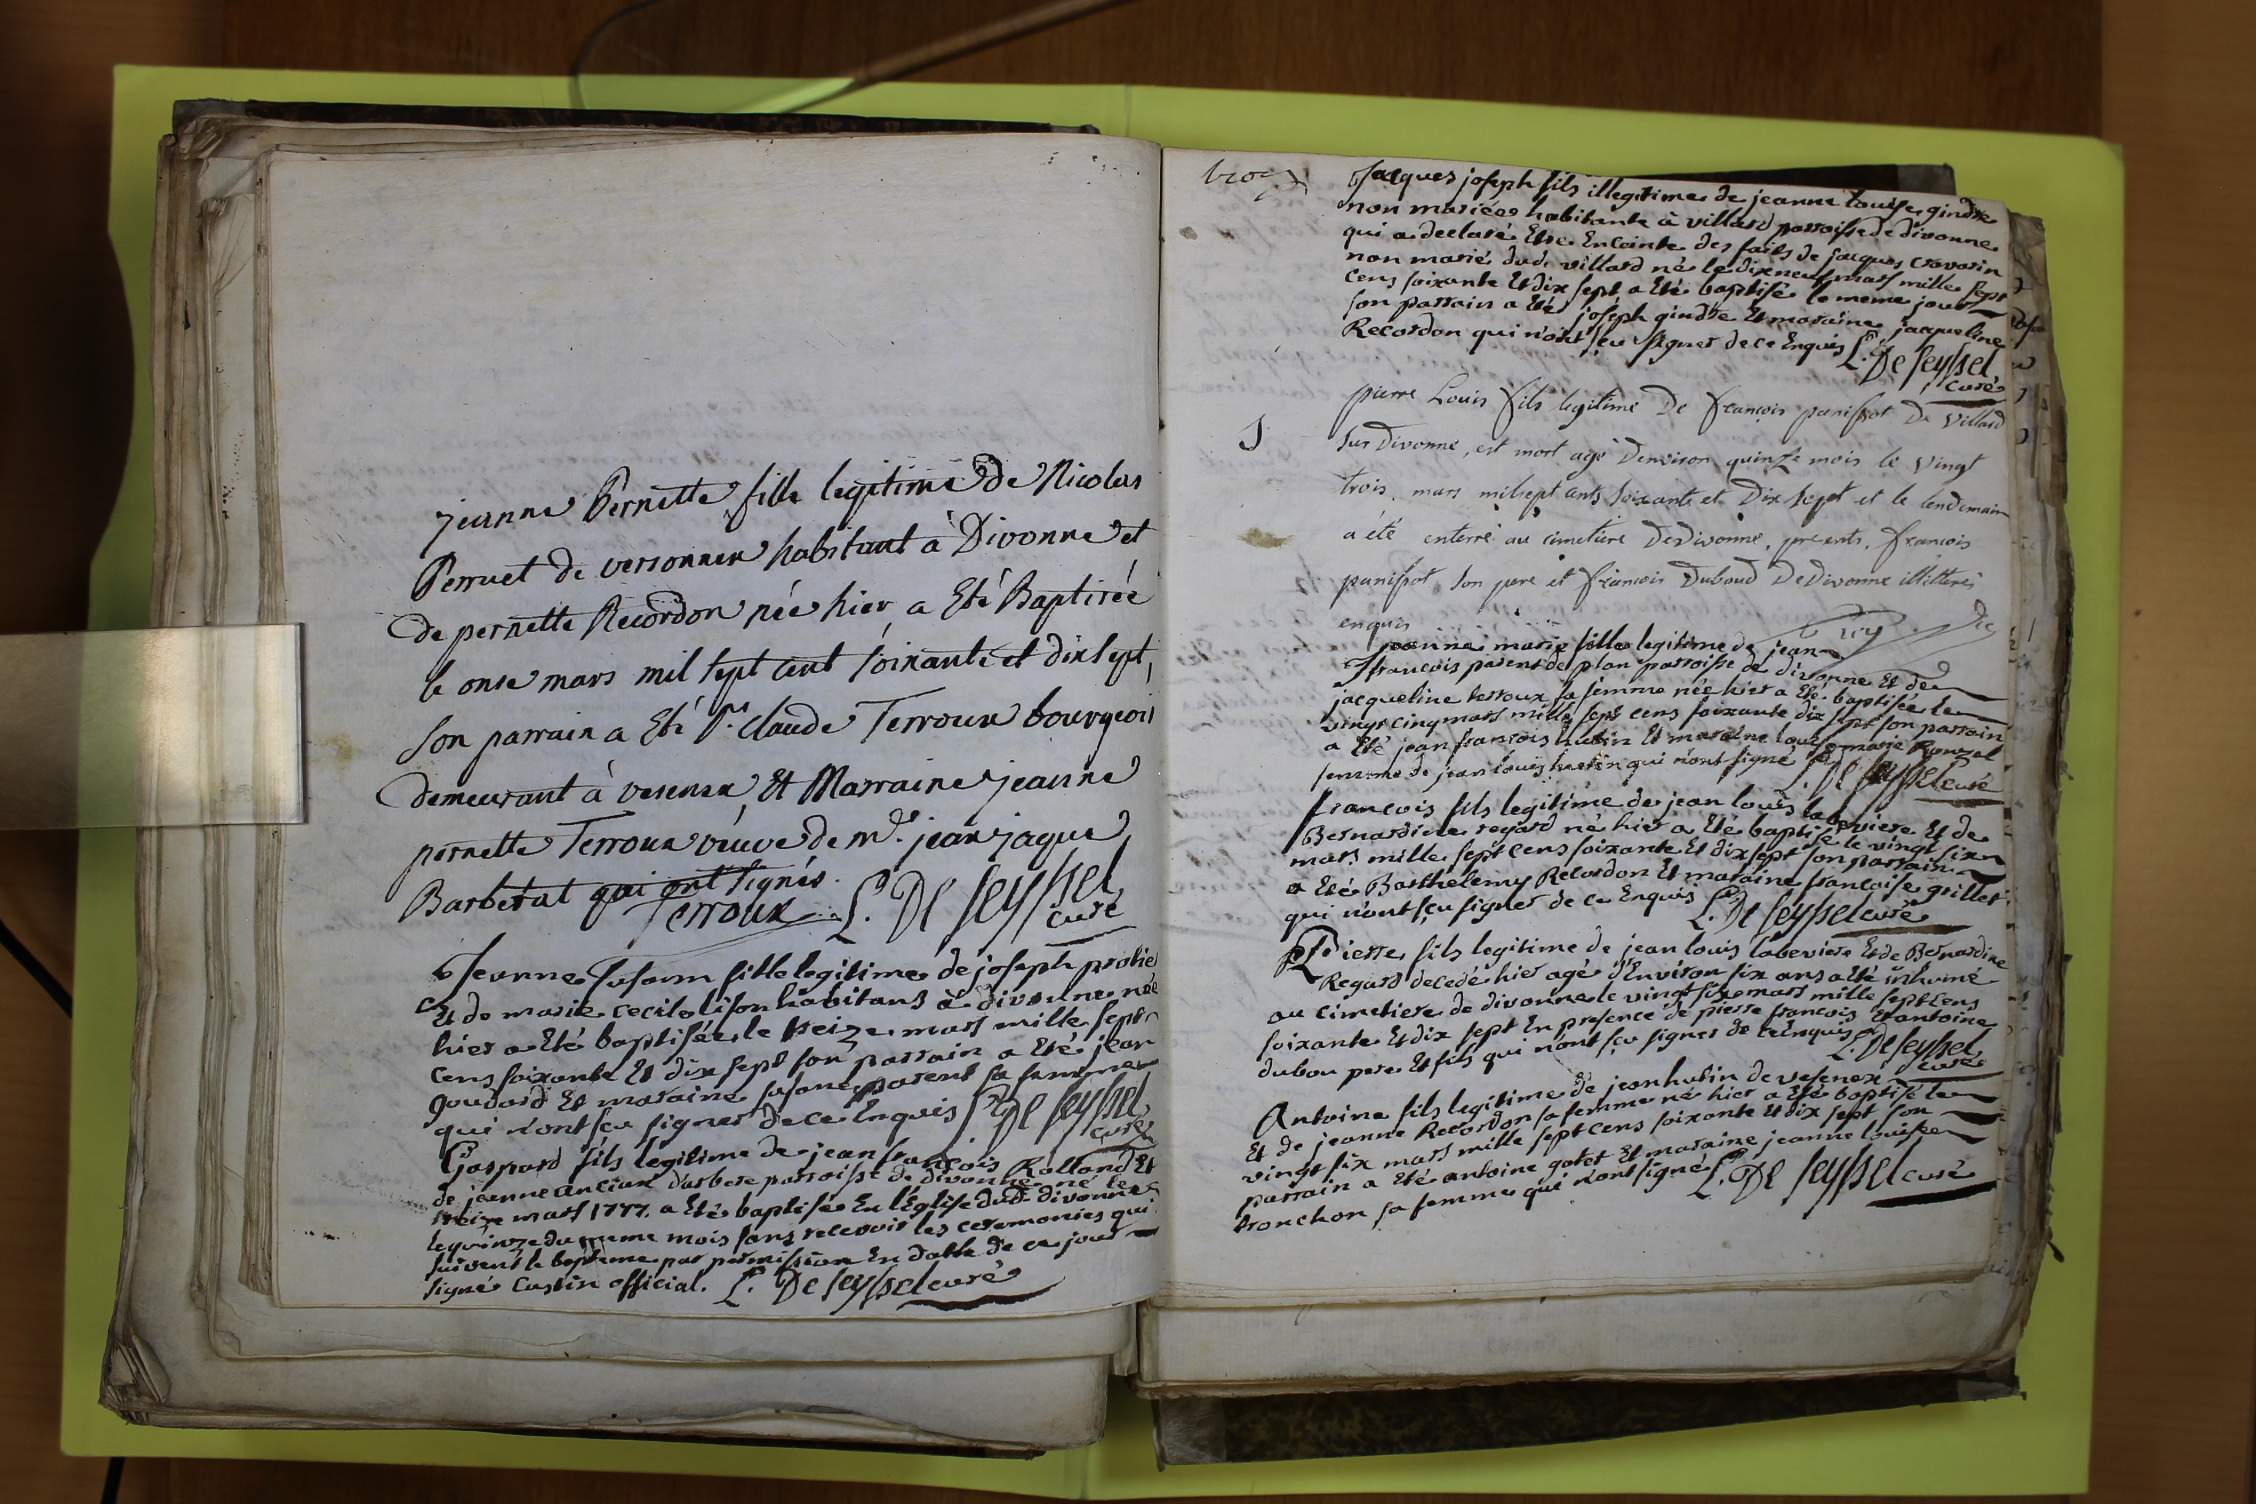 jeanne Pernette fille legitime de Nicolas
Perruet de versonnex habitant à Divonne et
de pernette Recordon née hier a Eté Baptisée
le onse mars mil sept cent soixante et dix sept,
son parrain a Eté Sr. Claude Terroux bourgeois
demeurant à vesenex Et Marraine jeanne
pernette Terroux véuve de mr. jean jaque
Barbetat qui ont signés.
Terroux L. De Seyssel
curé
Jeanne Susann fille legitime de joseph probie
Et de marie cecile lison habitans à divonne née
hier a Eté baptisée le treize mars mille sept
cens soixante Et dix sept son parrain a Eté jean
goudard Et maraine susane parent sa femme
qui n'ont sçu signer de ce Enquis L. De Seyssel
curé
Gaspard fils legitime de jean francois Rolland Et
de jeanne ancian d'arbere parroisse de divonne né le
treize mars 1777. a Eté baptisé En l'Eglise dud. divonne
le quinze du meme mois sans recevoir les ceremonies qui
suivent le bapteme par permission En datte de ce jour
signé Castin official. L. De Seyssel curé
Jacques joseph fils illegitime de jeanne louise gindre
non mariée habitante à villard parroisse de divonne
qui a declaré Etre Enceinte des faits de jacques cravarin
non marié dud. villard né le dix neuf mars mille sept
cens soixante Et dix sept a Eté baptisé le meme jour
son parrain a Eté joseph gindre Et maraine jacqueline
Recordon qui n'ont sçu signer de ce Enquis L. De Seyssel
curé
pierre Louis fils legitime De françois panissot De Villard
sur Divonne, est mort agé D'environ quinze mois le Vingt
trois mars mil sept cents soixante et Dix sept et le lendemain
a été enterré au cimetière De Divonne, presents, françois
panissot son pere et françois Duboud De Divonne illitterés
enquis
jeanne marie fille legitime de jean
francois parent de plan parroisse de divonne Et de
jacqueline terroux sa femme née hier a Eté baptisée le
vingt cinq mars mille sept cens soixante dix sept son parrain
a Eté jean francois hutin Et maraine louise marie
femme de jean louis hutin qui n'ont signé L. De Seyssel curé
francois fils legitime de jean louis labeviere Et de
Bernardine regard né hier a Eté baptisé le vingt six
mars mille sept cens soixante Et dix sept son parrain
a Eté Barthelemy Recordon Et maraine francoise grillet
qui n'ont sçu signer de ce Enquis L. De Seyssel curé
Pierre fils legitime de jean louis labeviere Et de Bernardine
Regard decedé hier agé d'Environ six ans a Eté inhumé
au cimetiere de divonne le vingt six mars mille sept cens
soixante Et dix sept En presence de pierre francois Et antoine
dubou pere Et fils qui n'ont sçu signer de ce Enquis L. De Seyssel
curé
Antoine fils legitime de jean hutin de vesenex
Et de jeanne Recordon sa femme né hier a Eté baptisé le
vingt six mars mille sept cens soixante Et dix sept son
parrain a Eté antoine gotet Et maraine jeanne louise
tronchon sa femme qui n'ont signé L. De Seyssel curé